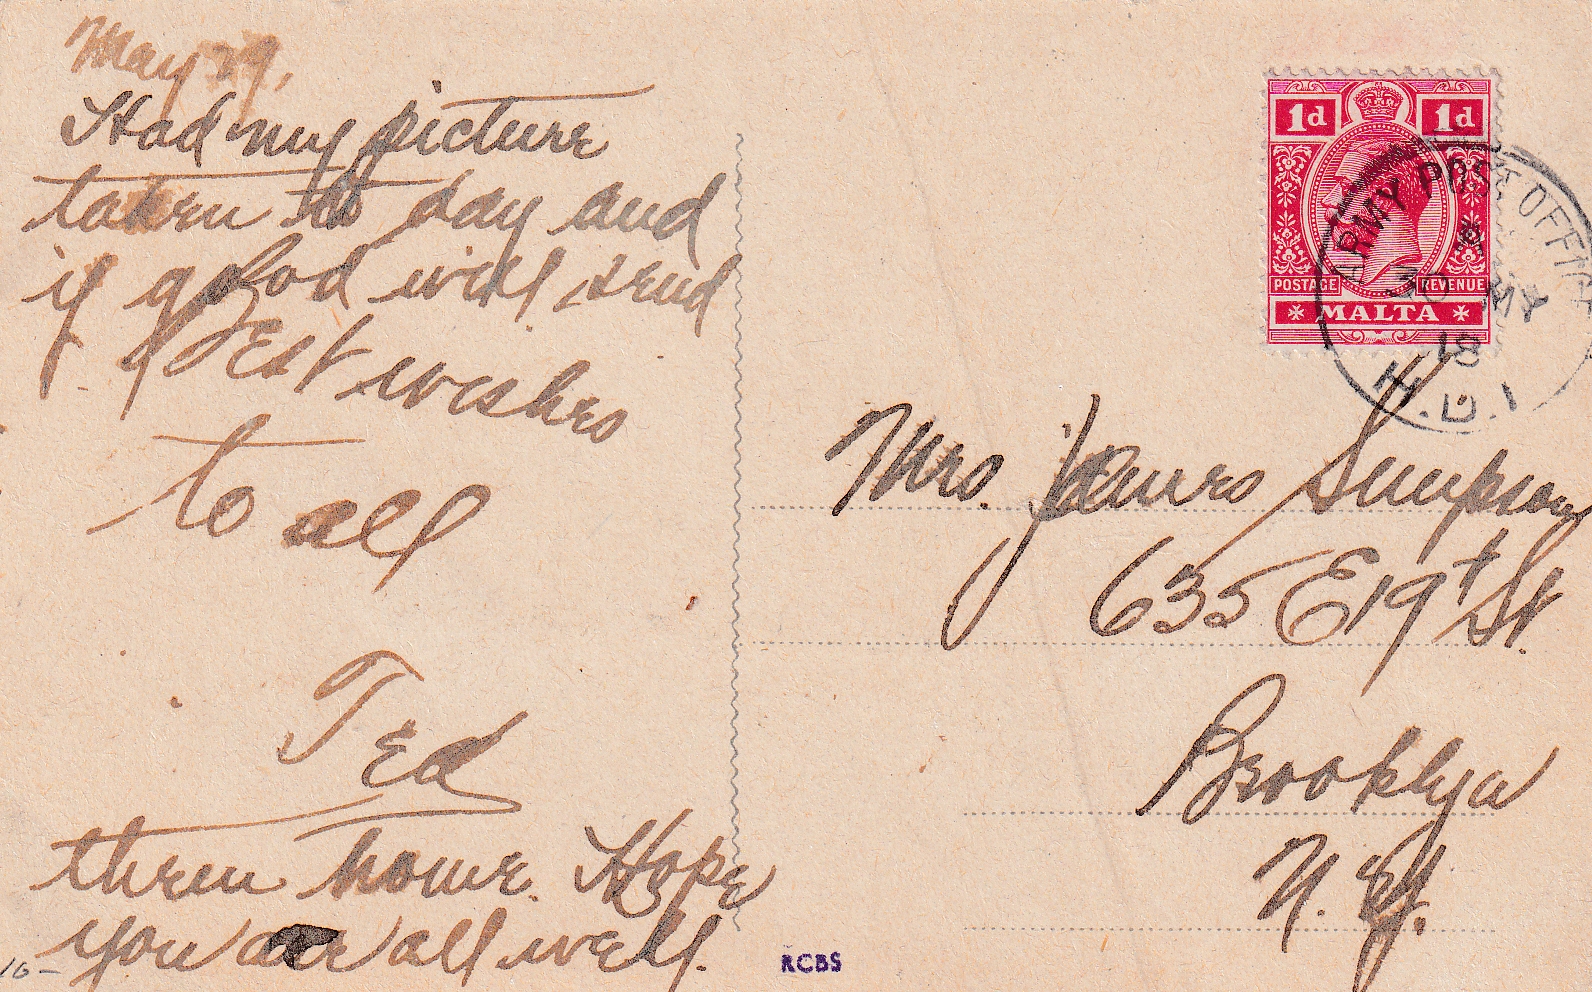 May 29,
Had my picture
taken to day and
if good will send
Best wishes
to all
Ted
them home. Hope
you are all well.
10-
1d 1d
POSTAGE REVENUE
MALTA
ARMY POST OFFICE
30 MY
18
H.D.1
Mrs. James Simpson
635 E 19t St.
Brooklyn
N. Y.
RCBS